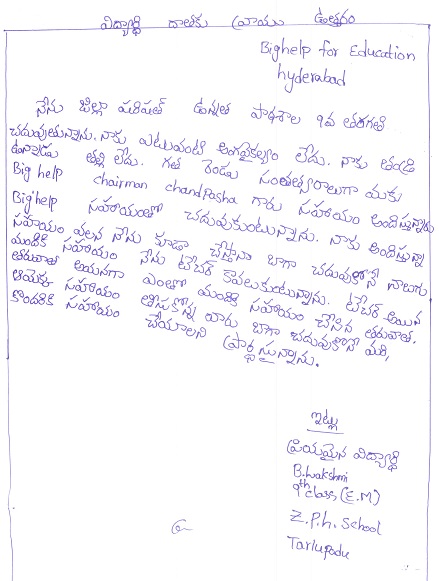 విద్యార్థి దాతకు వ్రాయు ఉత్తరం
Bighelp for Education
hyderabad
నేను జిల్లా పరిషత్ ఉన్నత పాఠశాల 9వ తరగతి
చదువుతున్నాను. నాకు ఎటువంటి అంగవైకల్యం లేదు. నాకు తండ్రి
ఉన్నాడు తల్లి లేదు. గత రెండు సంతత్సరాలుగా మకు
Big help chairman chand Pasha గారు సహాయం అందిస్తున్నారు
Big help సహాయంతో చదువుకుంటున్నాను. నాకు అందిస్తున్నా
సహాయం వలన నేను కూడా బాగా చదువుకోని నాలుగు
మందికి సహాయం చేస్తాను నేను టీచర్ కావలకుంటున్నాను. టీచర్ అయిన
తరువాత ఆయనగా ఎంతో మందికి సహాయం చేసిన తరువాత.
ఆయొక్క సహాయం తీసుకొన్న వారు బాగా చదువుకోని మరి,
కొందరికి సహాయం చేయాలని ప్రార్థిస్తున్నాను.
ఇట్లు
ప్రియమైన విద్యార్థి
B. Lakshmi
9th class, (E.M)
Z.P.h. School
Tarlupadu